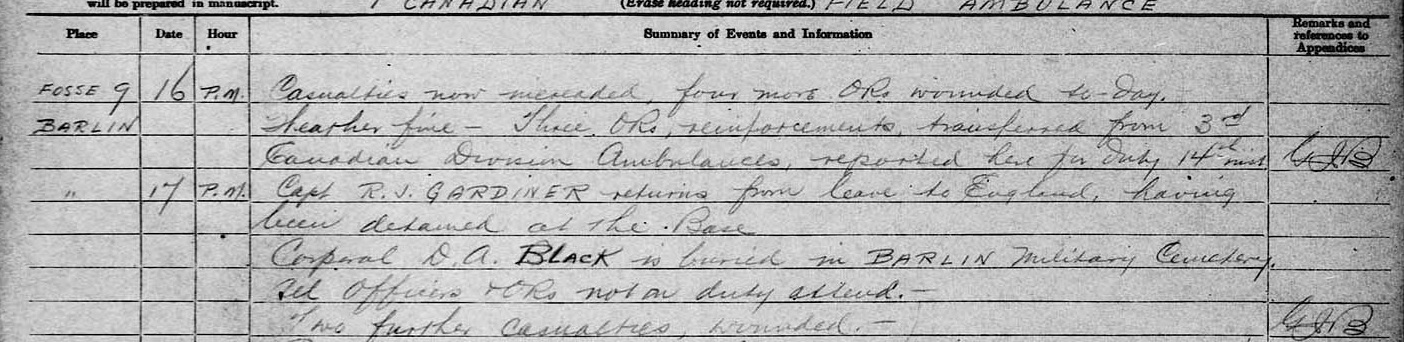 will be prepared in manuscript. 1 CANADIAN (Erase heading not required.) FIELD AMBULANCE
Place Date Hour Summary of Events and Information Remarks and references to Appendices
FOSSE 9 16 P.M. Casualties now increased, four more ORs wounded to-day.
BARLIN Weather fine - Three ORs, reinforcements, transferred from 3rd
Canadian Division Ambulances, reported here for duty 14th inst GJB
" 17 P.M. Capt R.J. GARDINER returns from leave to England, having
been detained at the Base
Corporal D.A. BLACK is buried in BARLIN Military Cemetery.
All Officers & ORs not on duty attend. -
Two further casualties, wounded. - GJB